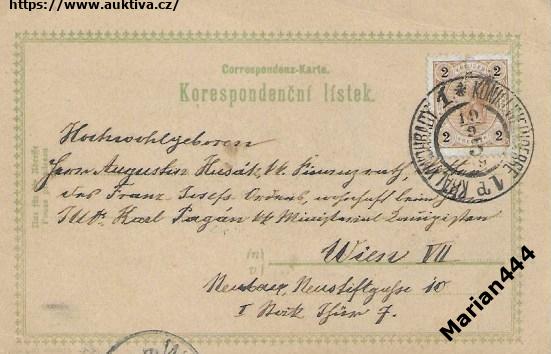 https://www.auktiva.cz/
Correspondenz-Karte.
Korespondenční lístek.
2 2
2 2
KÖNIGL. WEINBERGE
KRÁL. VINOHRADY
1
Hochwohlgeboren
Herrn Augustin Husák, k.k. Finanzrath,
des Franz Josefs Ordens, wohlhaft beim Herrn
JUDr. Karl Pagán k.k. Ministerial
in
v
Wien VII
Neubau, Neustiftgasse 10
I Stock Thür 7.
Marian444